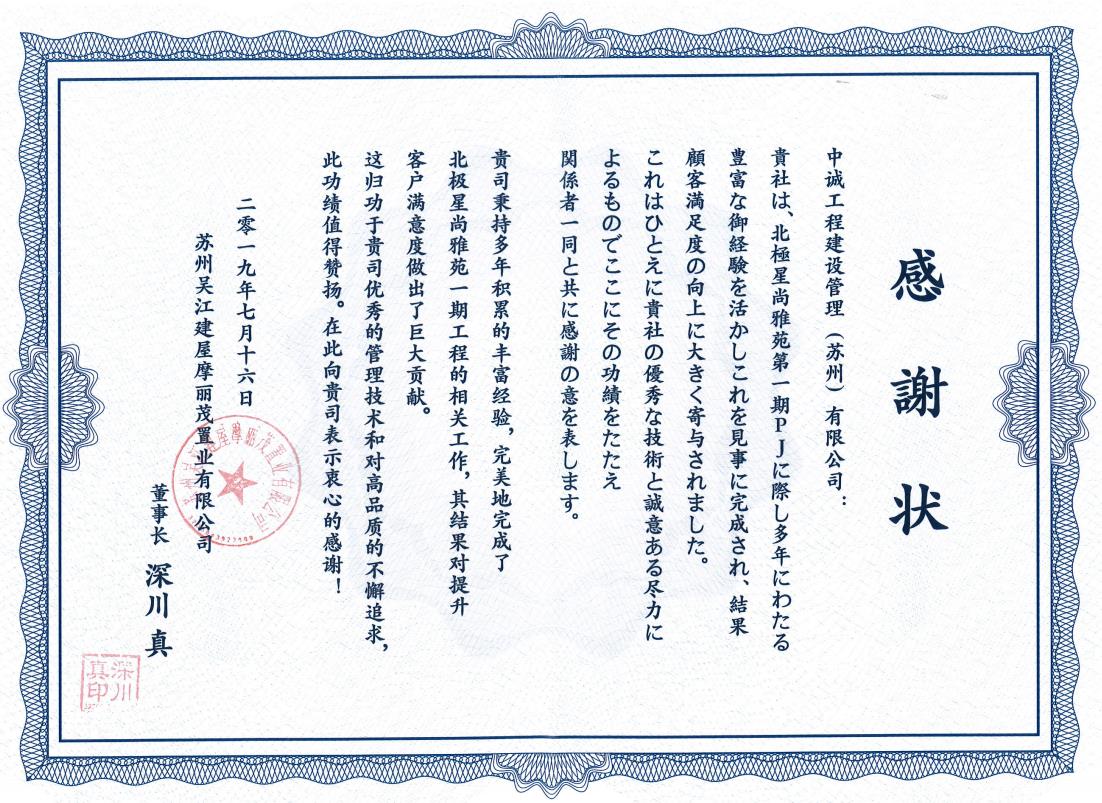 感謝状
中诚工程建设管理（苏州）有限公司：
貴社は、北極星尚雅苑第一期PJに際し多年にわたる
豊富な御経験を活かしこれを見事に完成され、結果
顧客満足度の向上に大きく寄与されました。
これはひとえに貴社の優秀な技術と誠意ある尽力に
よるものでここにその功績をたたえ
関係者一同と共に感謝の意を表します。
贵司秉持多年积累的丰富经验，完美地完成了
北极星尚雅苑一期工程的相关工作，其结果对提升
客户满意度做出了巨大贡献。
这归功于贵司优秀的管理技术和对高品质的不懈追求，
此功绩值得赞扬。在此向贵司表示衷心的感谢！
二零一九年七月十六日
苏州吴江建屋摩丽茂置业有限公司
董事长 深川 真
深川
真印